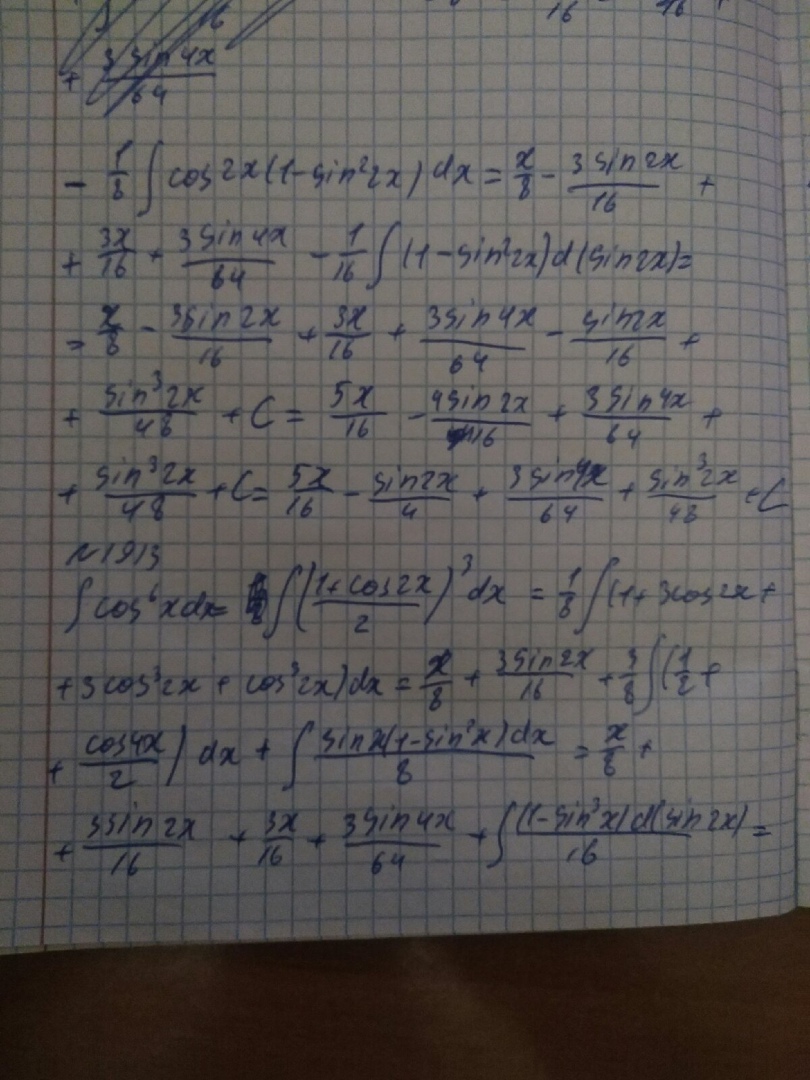 16 16
+ 3 sin 4x / 64
- 1/8 ∫ cos 2x (1 - sin² 2x) dx = x/8 - 3 sin 2x / 16 +
+ 3x/16 + 3 sin 4x / 64 - 1/16 ∫ (1 - sin² 2x) d(sin 2x) =
= x/8 - 3 sin 2x / 16 + 3x/16 + 3 sin 4x / 64 - sin 2x / 16 +
+ sin³ 2x / 48 + C = 5x/16 - 4 sin 2x / 16 + 3 sin 4x / 64 +
+ sin³ 2x / 48 + C = 5x/16 - sin 2x / 4 + 3 sin 4x / 64 + sin³ 2x / 48 + C
N 1913
∫ cos⁶ x dx = ∫ ((1 + cos 2x) / 2)³ dx = 1/8 ∫ (1 + 3 cos 2x +
+ 3 cos² 2x + cos³ 2x) dx = x/8 + 3 sin 2x / 16 + 3/8 ∫ (1/2 +
+ cos 4x / 2) dx + ∫ sin x (1 - sin² x) dx / 8 = x/8 +
+ 3 sin 2x / 16 + 3x/16 + 3 sin 4x / 64 + ∫ (1 - sin² x) d(sin 2x) / 16 =